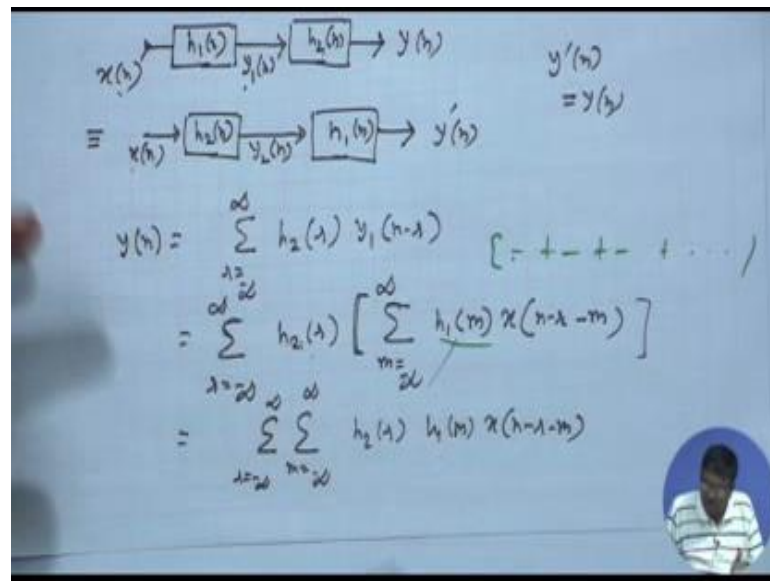 x(n) → h₁(n) y₁(n) → h₂(n) → y(n)
y'(n)
= y(n)
≡ x(n) → h₂(n) y₂(n) → h₁(n) → y'(n)
y(n) = ∑_{r=-∞}^{∞} h₂(r) y₁(n-r)
[- + - + - + ....)
= ∑_{r=-∞}^{∞} h₂(r) [ ∑_{m=-∞}^{∞} h₁(m) x(n-r-m) ]
= ∑_{r=-∞}^{∞} ∑_{m=-∞}^{∞} h₂(r) h₁(m) x(n-r-m)